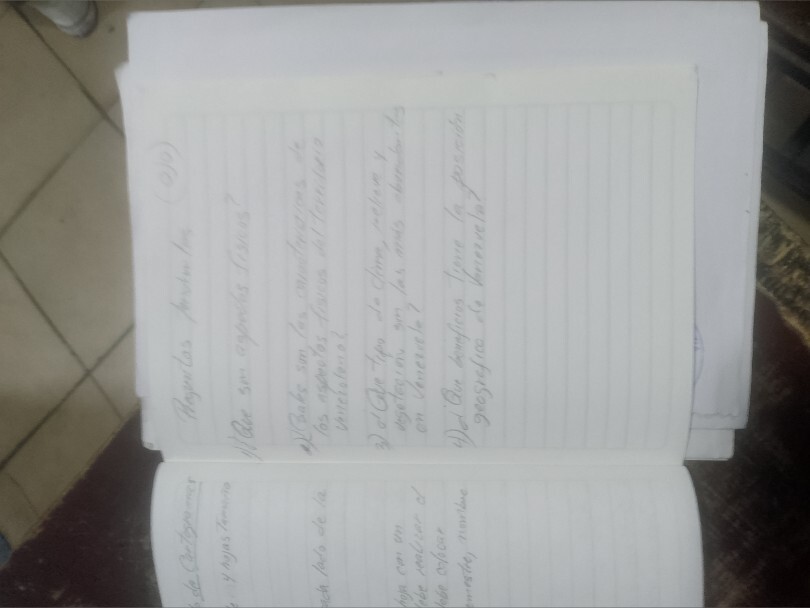 Preguntas (ojo)
1) Que son aspectos físicos?
2) Cuales son las características de
los aspectos físicos del territorio
venezolano?
3) ¿Que tipo de clima, relieve y
vegetación son las más abundantes
en Venezuela?
4) ¿Que beneficios tiene la posición
geográfica de Venezuela?
de Cartogramas
y hojas tamaño
lado de la
hoja con un
realizar
colocar
nombre